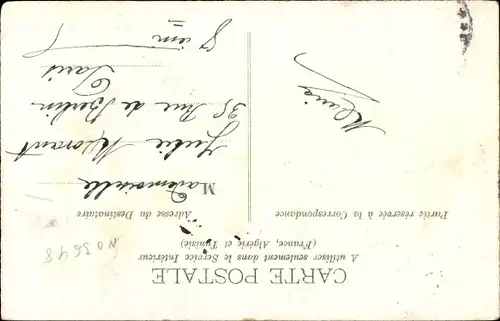 CARTE POSTALE
A utiliser seulement dans le Service Intérieur
(France, Algérie et Tunisie)
Partie réservée à la Correspondance
Adresse du Destinataire
M Mademoiselle
Julie
35 Rue de Berlin
Paris
8 iem
NO 3648